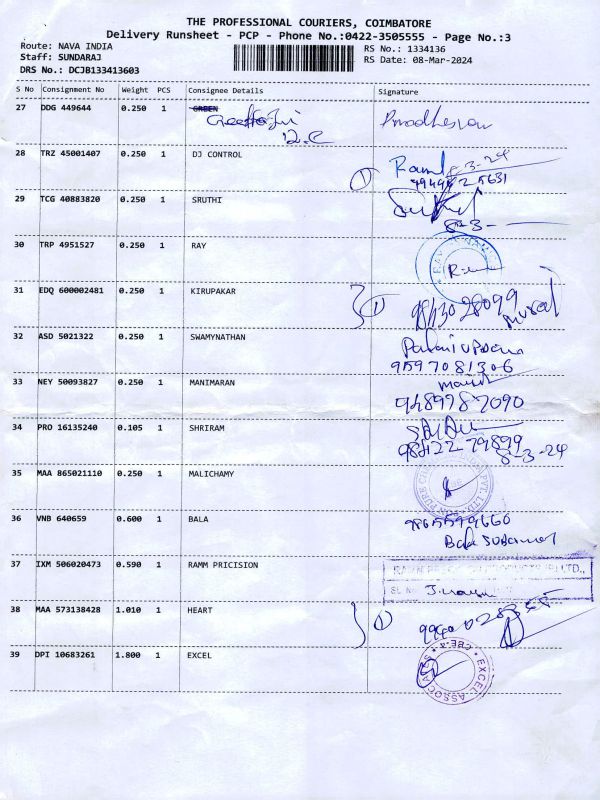 THE PROFESSIONAL COURIERS, COIMBATORE
Delivery Runsheet - PCP - Phone No.:0422-3505555 - Page No.:3
Route: NAVA INDIA
RS No.: 1334136
Staff: SUNDARAJ
RS Date: 08-Mar-2024
DRS No.: DCJB133413603
S No Consignment No Weight PCS Consignee Details Signature
27 DDG 449644 0.250 1 GREEN
28 TRZ 45001407 0.250 1 DJ CONTROL
29 TCG 40883820 0.250 1 SRUTHI
8-3-
30 TRP 4951527 0.250 1 RAY
31 EDQ 600002481 0.250 1 KIRUPAKAR
32 ASD 5021322 0.250 1 SWAMYNATHAN
9597081306
33 NEY 50093827 0.250 1 MANIMARAN
9489987090
34 PRO 16135240 0.105 1 SHRIRAM
9842279899
8-3-24
35 MAA 865021110 0.250 1 MALICHAMY
36 VNB 640659 0.600 1 BALA
37 IXM 506020473 0.590 1 RAMM PRICISION
38 MAA 573138428 1.010 1 HEART
39 DPI 10683261 1.800 1 EXCEL
EXCEL ASSOCIATES CBE-4